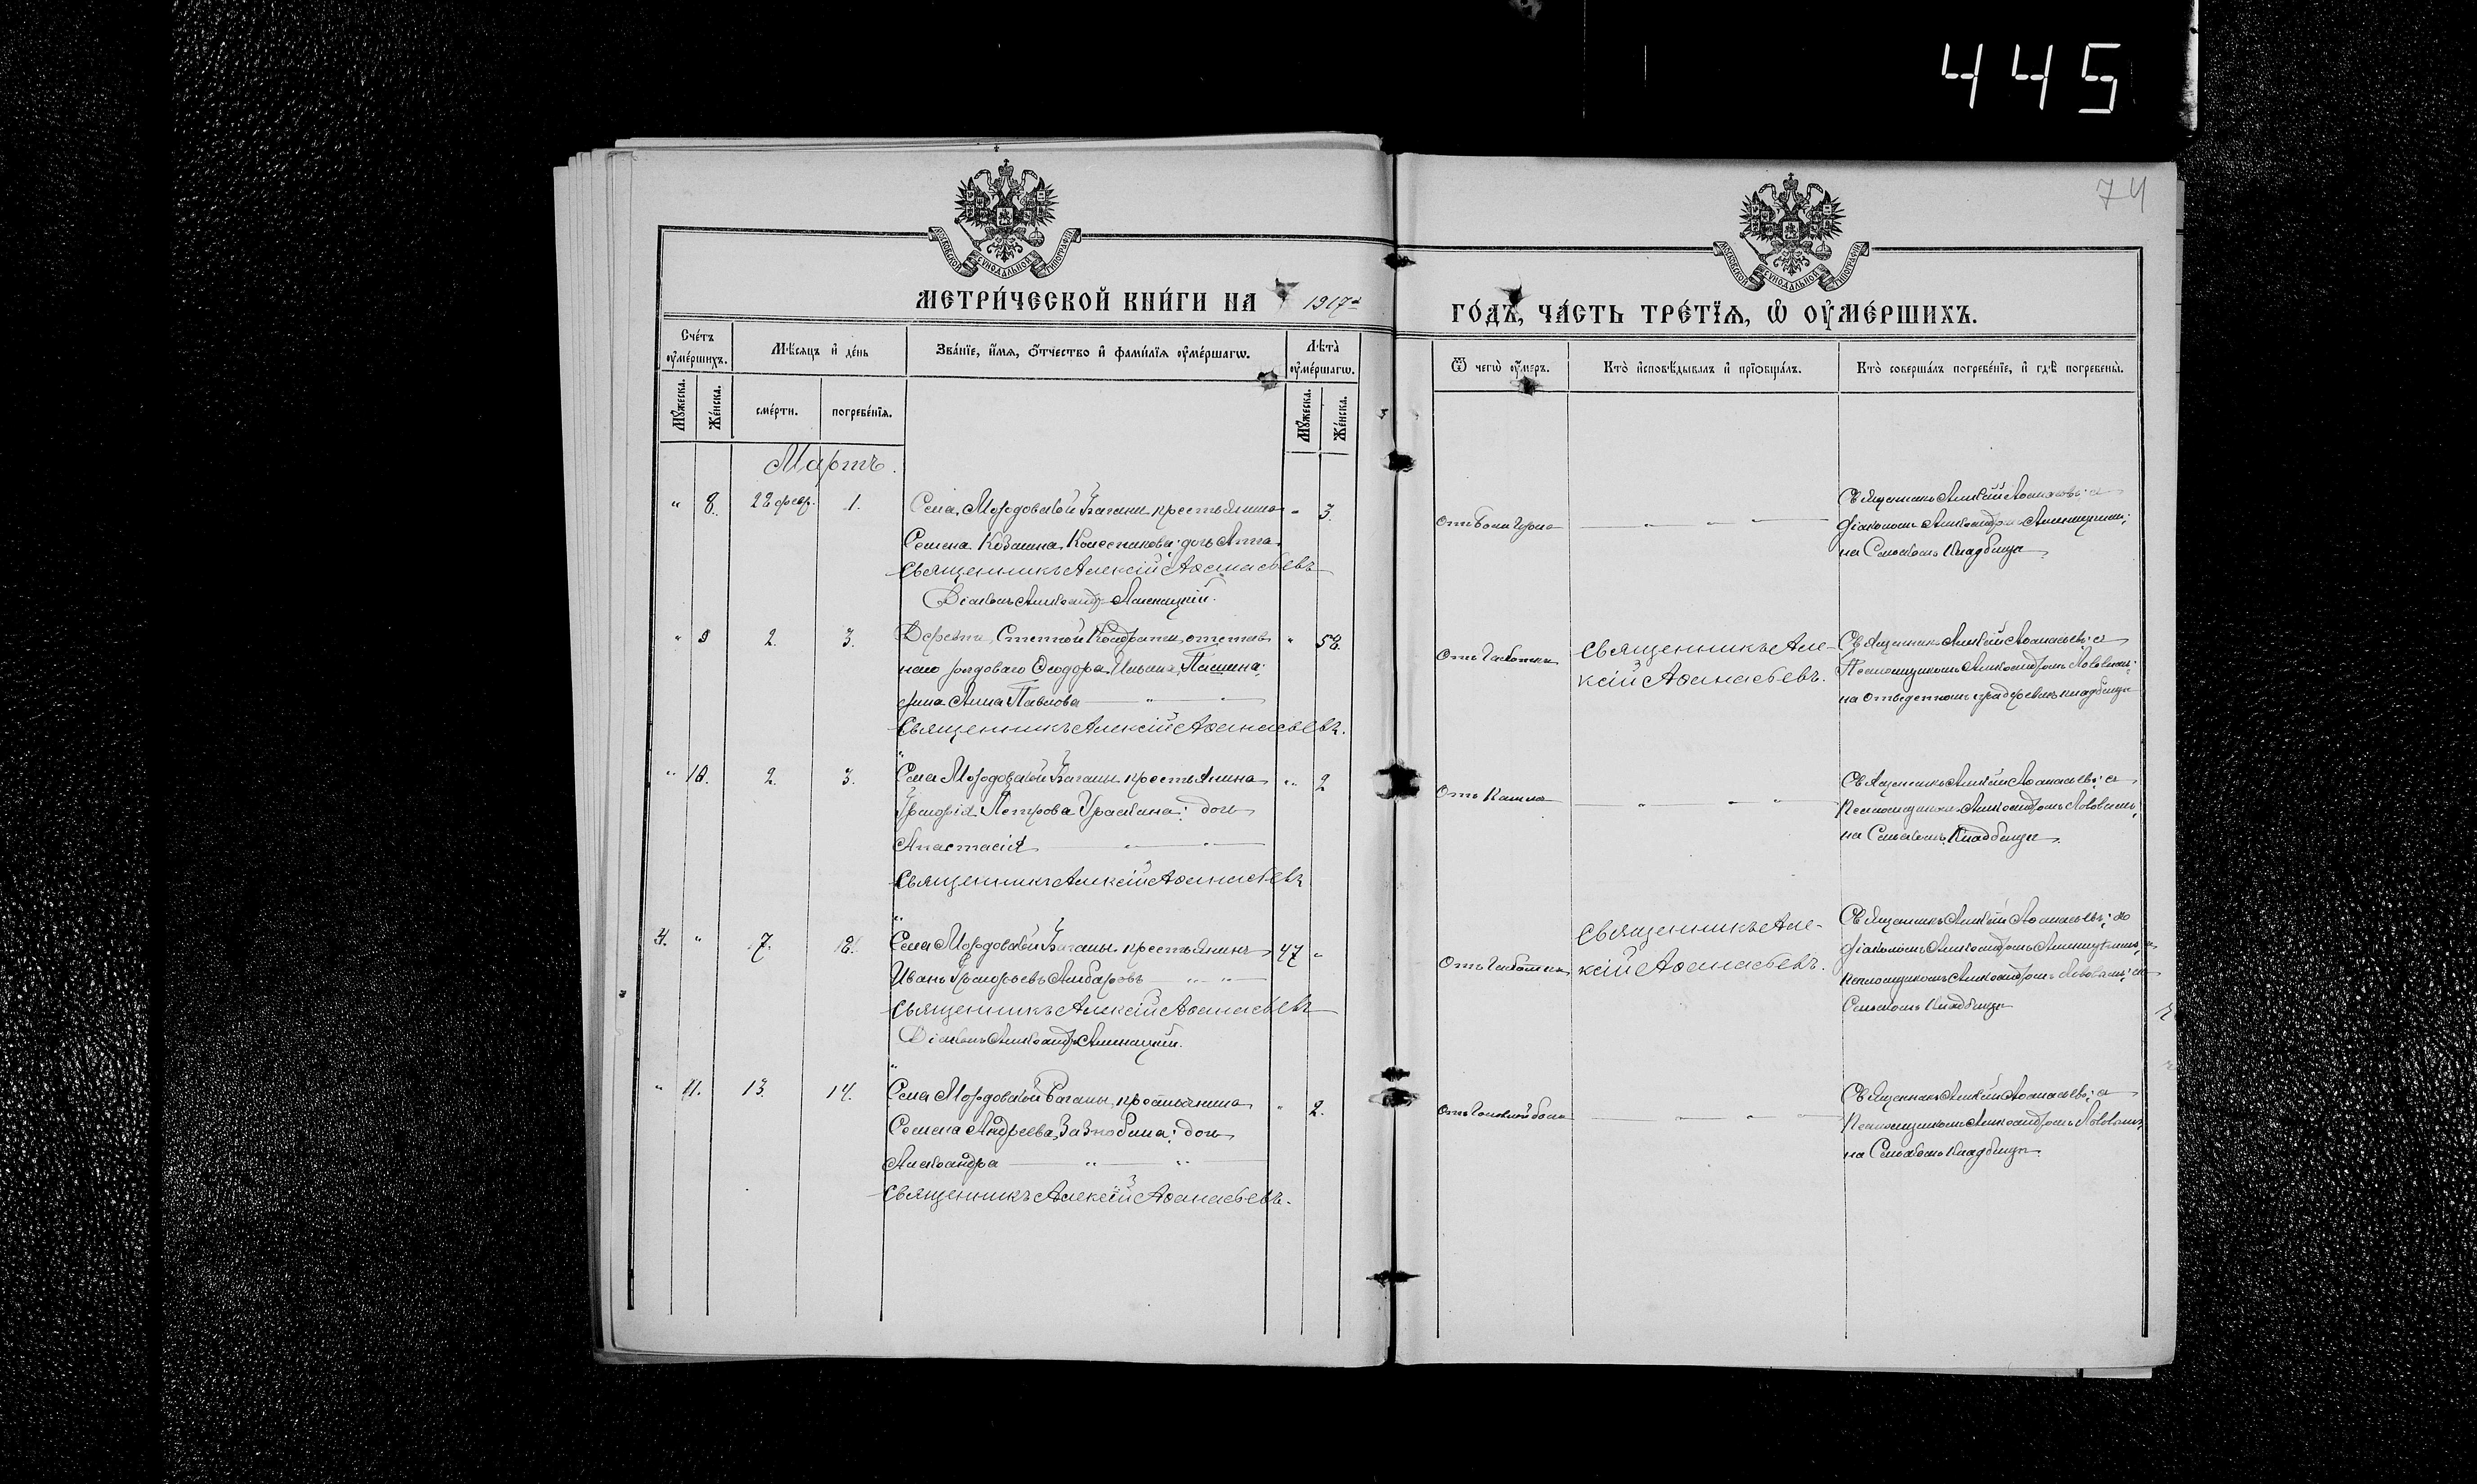 445
74
МОСКОВСКОЙ СѴНОДАЛЬНОЙ ТИПОГРАФІИ
МОСКОВСКОЙ СѴНОДАЛЬНОЙ ТИПОГРАФІИ
МЕТРИ́ЧЕСКОЙ КНИ́ГИ НА 1917
ГО́ДЪ, ЧА́СТЬ ТРЕ́ТЇѦ, Ѽ ОУ҆МЕ́РШИХЪ.
Сче́тъ оу҆ме́ршихъ.
Мꙋ́жеска.
Же́нска.
Мѣ́сѧцъ и҆ де́нь
сме́рти.
погребе́нїѧ.
Зва́нїе, и҆́мѧ, ѻ҆́тчество и҆ фами́лїѧ оу҆ме́ршагѡ.
Лѣ́та оу҆ме́ршагѡ.
Мꙋ́жеска.
Же́нска.
Ѿ чегѡ̀ оу҆́меръ.
Кто̀ и҆сповѣ́дывалъ и҆ прїѡбща́лъ.
Кто̀ соверша́лъ погребе́нїе, и҆ гдѣ̀ погребены̀.
Мартъ.
" 8. 28 февр. 1. Села Мордовской крестьянина " 3.
Семена Козьмина Колесникова: дочь Анна
Священникъ Алексій Аѳанасьевъ
Діаконъ Александръ
Священникъ Алексій Аѳанасьевъ; съ
діакономъ Александромъ
на Сельскомъ Кладбищѣ
" 9 2. 3. Деревни Степной отстав " 58.
наго рядоваго Ѳеодора Ильина Пашина:
жена Анна Павлова
Священникъ Алексій Аѳанасьевъ.
Отъ Чахотки
Священникъ Але-
ксій Аѳанасьевъ.
Священникъ Алексій Аѳанасьевъ; съ
Псаломщикомъ Александромъ
на кладбищѣ
" 10. 2. 3. Села Мордовской крестьянина " 2
Григорія Петрова дочь
Анастасія
Священникъ Алексій Аѳанасьевъ
Отъ Кашля
Священникъ Алексій Аѳанасьевъ; съ
Псаломщикомъ Александромъ
на Сельскомъ Кладбищѣ.
4. " 7. Села Мордовской крестьянинъ 47 "
Иванъ Григорьевъ Амбаровъ
Священникъ Алексій Аѳанасьевъ
Діаконъ Александръ
Отъ Чахотки
Священникъ Але-
ксій Аѳанасьевъ.
Священникъ Алексій Аѳанасьевъ; съ
діакономъ Александромъ
псаломщикомъ Александромъ
Сельскомъ Кладбищѣ
" 11. 13. 14. Села Мордовской крестьянина " 2.
Семена Андреева Зазнобина: дочь
Александра
Священникъ Алексій Аѳанасьевъ.
Отъ Головной боли
Священникъ Алексій Аѳанасьевъ; съ
Псаломщикомъ Александромъ
на Сельскомъ Кладбищѣ.